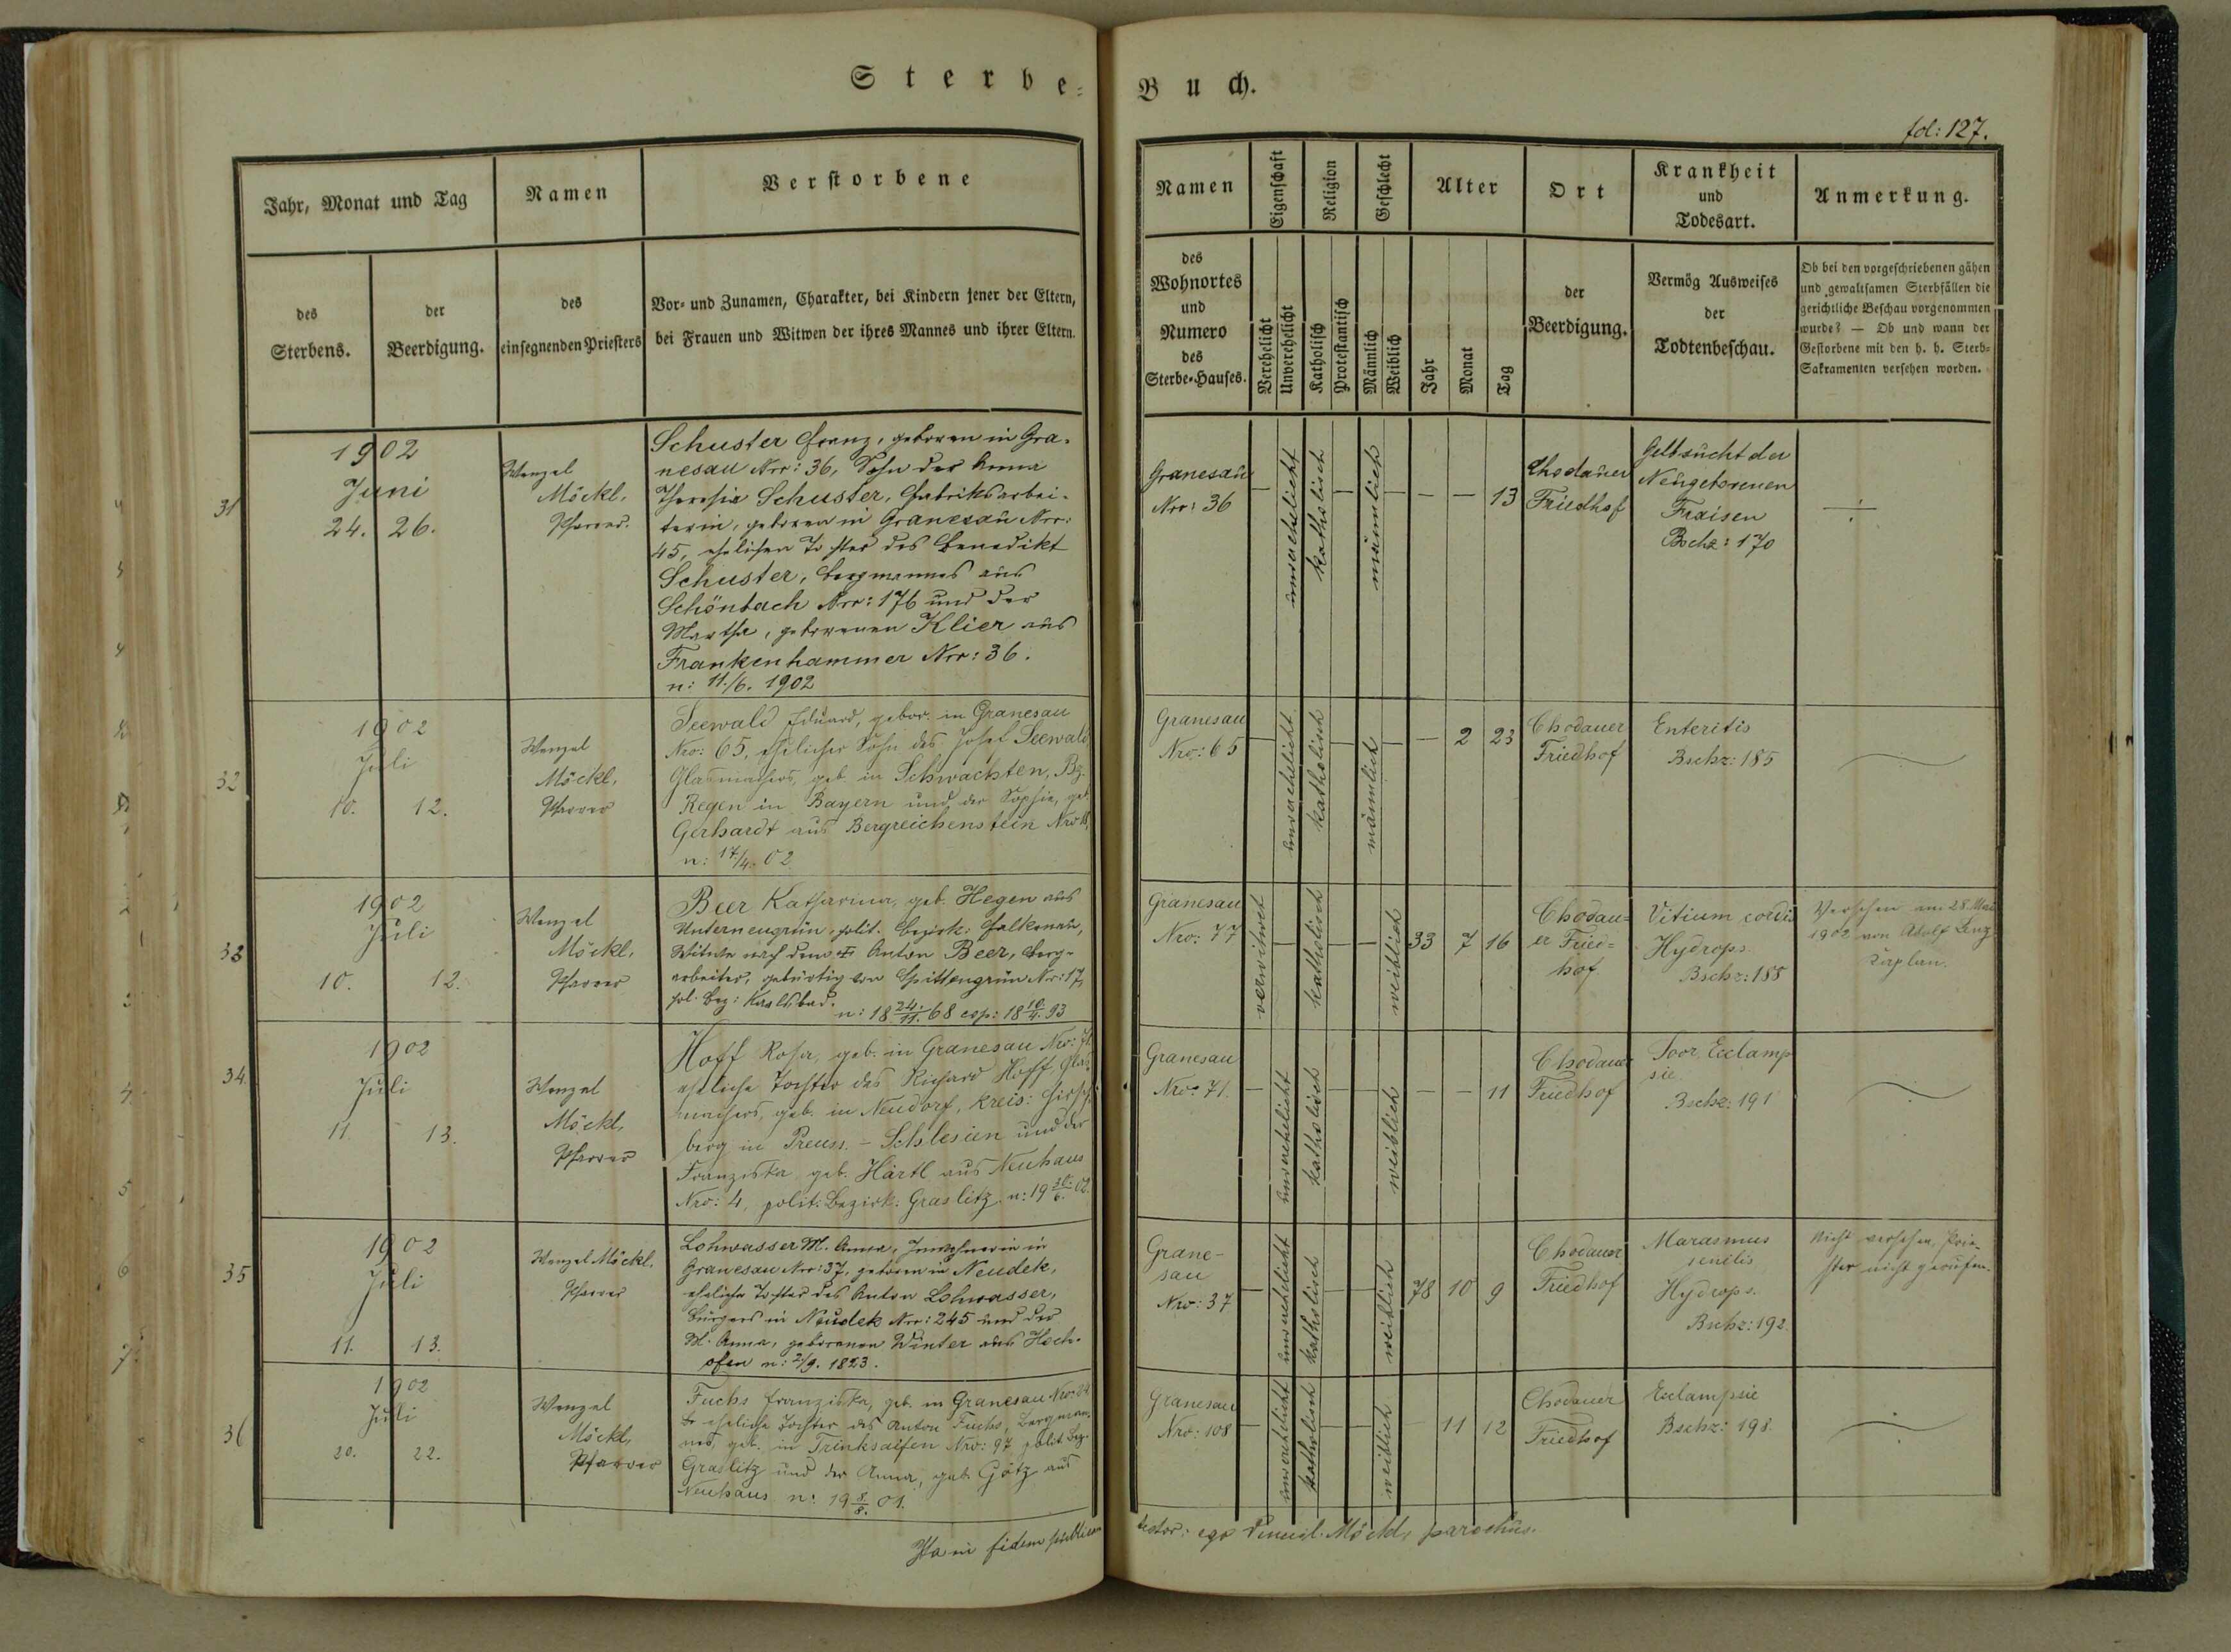 Sterbe-
Buch.
fol: 127.
Jahr, Monat und Tag
Namen
Verstorbene
des
Sterbens.
der
Beerdigung.
des
einsegnenden Priesters
Vor- und Zunamen, Charakter, bei Kindern jener der Eltern,
bei Frauen und Witwen der ihres Mannes und ihrer Eltern.
Namen
Eigenschaft
Religion
Geschlecht
Alter
Ort
Krankheit
und
Todesart.
Anmerkung.
des
Wohnortes
und
Numero
des
Sterbe-Hauses.
Verehelicht
Unverehelicht
Katholisch
Protestantisch
Männlich
Weiblich
Jahr
Monat
Tag
der
Beerdigung.
Vermög Ausweises
der
Todtenbeschau.
Ob bei den vorgeschriebenen gähen
und gewaltsamen Sterbfällen die
gerichtliche Beschau vorgenommen
wurde? — Ob und wann der
Gestorbene mit den h. h. Sterb-
Sakramenten versehen worden.
31
1902
Juni
24. 26.
Wenzel
Möckl,
Pfarrer.
Schuster Franz, geboren in Gra-
nesau Nro: 36, Sohn der Anna
Theresia Schuster, Fabriksarbei-
terin, geboren in Granesau Nro:
45, ehelichen Tochter des Benedikt
Schuster, Bergmannes aus
Schönbach Nro: 176 und der
Martha, geborenen Klier aus
Frankenhammer Nro: 36.
n: 11./6. 1902
Granesau
Nro: 36
unverehelicht
katholisch
männlich
— — 13
Chodauer
Friedhof
Gelbsucht der
Neugeborenen
Fraisen
Bschz: 170
32
1902
Juli
10. 12.
Wenzel
Möckl,
Pfarrer
Seewald Eduard, gebor. in Granesau
Nro: 65, ehelicher Sohn des Josef Seewald
Glasmachers, geb. in Schwachten, Bz.
Regen in Bayern und der Sophie, geb.
Gerhardt aus Bergreichenstein Nro 18,
n: 17/4. 02
Granesau
Nro: 65
unverehelicht
katholisch
männlich
— 2 23
Chodauer
Friedhof
Enteritis
Bschz: 185
33
1902
Juli
10. 12.
Wenzel
Möckl,
Pfarrer
Beer Katharina, geb. Hegen aus
Unterneugrün, polit. Bezirk: Falkenau,
Witwe nach dem † Anton Beer, Berg-
arbeiter, gebürtig von Spittengrün Nro: 17,
pol. Bez: Karlsbad.
n: 18 24./11. 68 cop: 18 10./4. 93
Granesau
Nro: 77
verwitwet
katholisch
weiblich
33 7 16
Chodau-
er Fried-
hof
Vitium cordis
Hydrops
Bschz: 188
Versehen am 28. Mai
1902 von Adolf
Kaplan.
34.
1902
Juli
11. 13.
Wenzel
Möckl,
Pfarrer
Hoff Rosa, geb. in Granesau Nro: 71.
eheliche Tochter des Richard Hoff, Glas-
machers, geb. in Neudorf, Kreis: Hirsch-
berg in Preuss. - Schlesien und der
Franziska, geb. Härtl aus Neuhaus
Nro: 4, polit: Bezirk: Graslitz. n: 19 30./6. 02
Granesau
Nro: 71.
unverehelicht
katholisch
weiblich
— — 11
Chodauer
Friedhof
Eclamp
sie.
Bschz: 191
35
1902
Juli
11. 13.
Wenzel Möckl,
Pfarrer
Lohwasser M. Anna, Inwohnerin in
Granesau Nro: 37, geboren in Neudek,
eheliche Tochter des Anton Lohwasser,
Bürgers in Neudek Nro: 245 und der
M. Anna, geborenen Winter aus Hoch-
ofen n: 2/9. 1823.
Grane-
sau
Nro: 37
unverehelicht
katholisch
weiblich
78 10 9
Chodauer
Friedhof
Marasmus
senilis
Hydrops.
Bschz: 192.
Nicht versehen, Prie-
ster nicht gerufen.
36
1902
Juli
20. 22.
Wenzel
Möckl,
Pfarrer
Fuchs Franziska, geb. in Granesau Nro:
eheliche Tochter des Anton Fuchs, Bergman-
nes, geb. in Trinksaifen Nro: 97 polit. Bez.
Graslitz und der Anna, geb. Götz aus
Neuhaus n: 19 8/8. 01.
Granesau
Nro: 108
unverehelicht
katholisch
weiblich
11 12
Chodauer
Friedhof
Eclampsie
Bschz: 198.
Ita in fidem
ego Möckl, parochus.